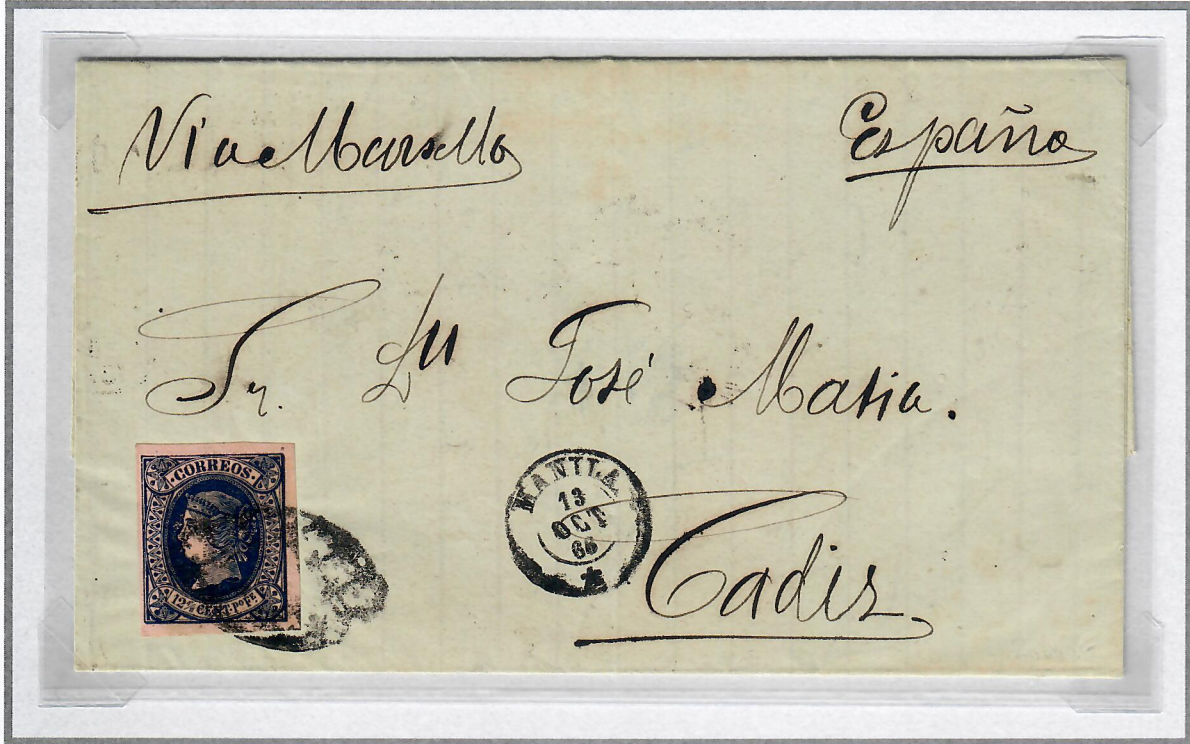 Via Marsella
España
Sr. Dn José Matia.
CORREOS
12 4/8 CENT. Po Fe
MANILA
13
OCT
66
Cadiz